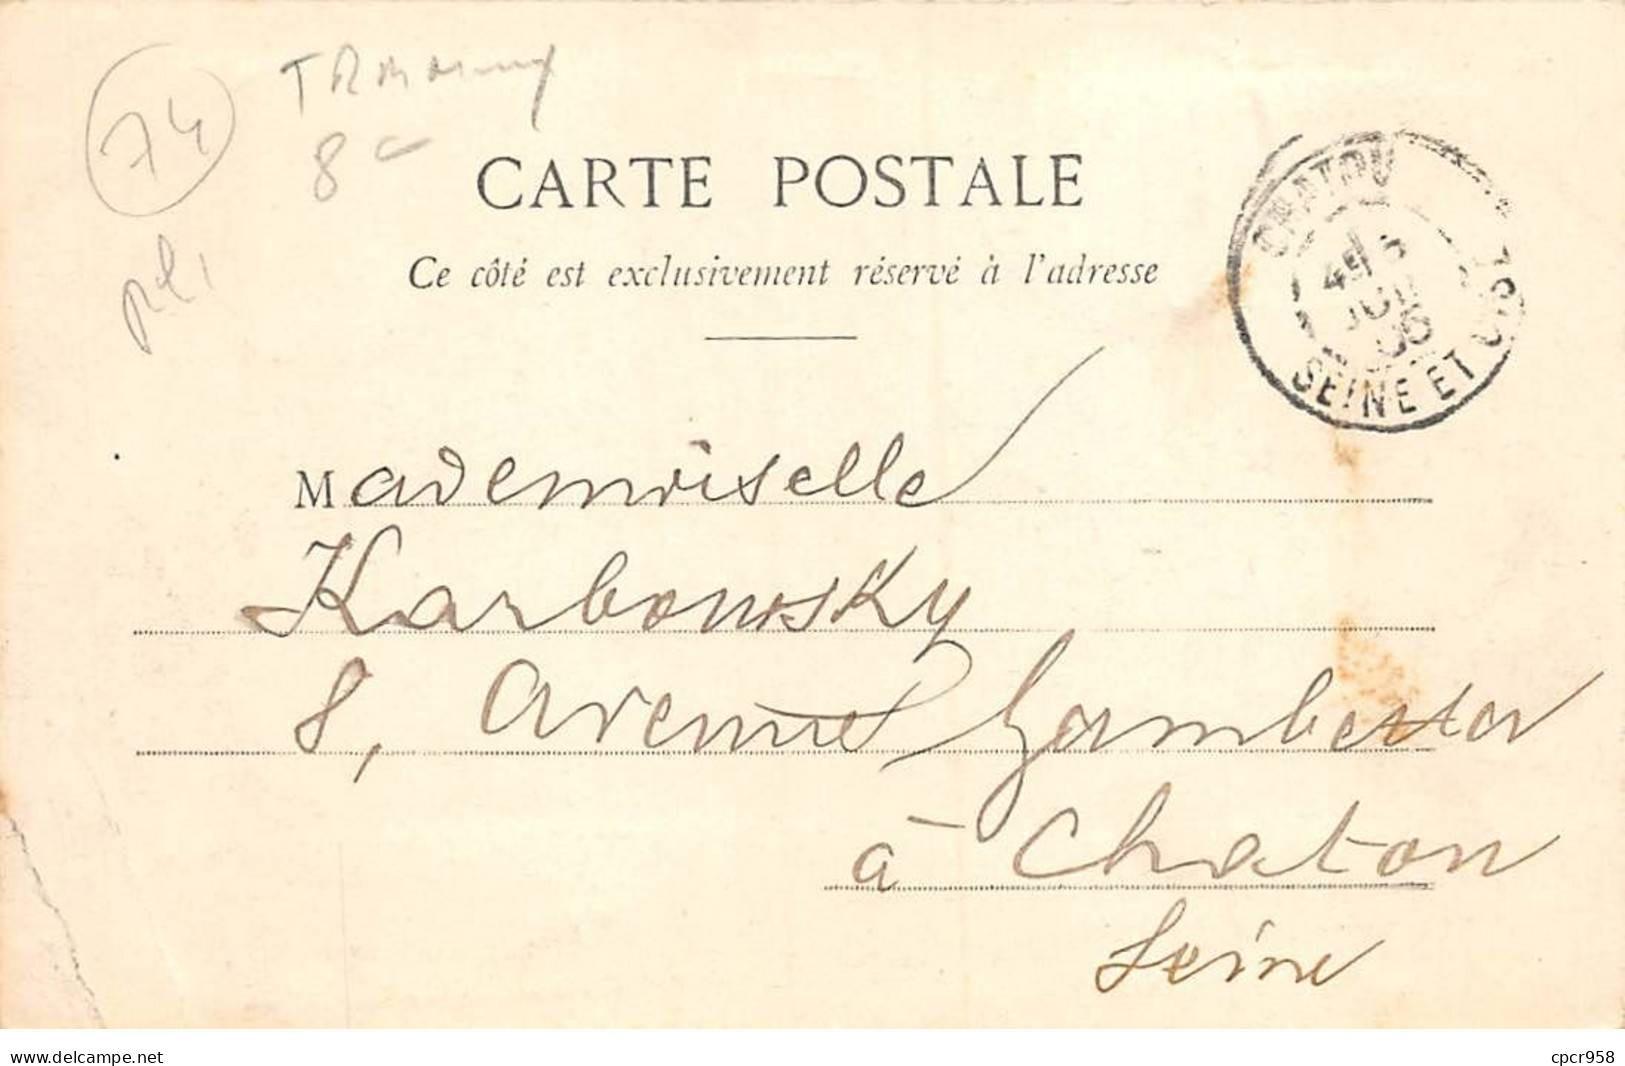 74
8c
CARTE POSTALE
Ce côté est exclusivement réservé à l'adresse
CHATOU
SEINE ET OISE
Mademoiselle
Karbowsky
8, Avenue Gambetta
à Chatou
Seine
www.delcampe.net
cpcr958